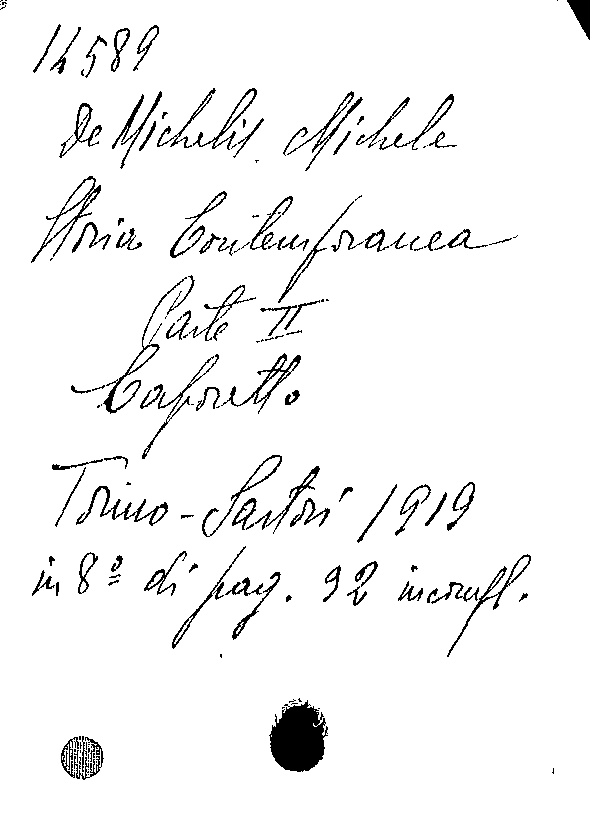 14589
De Michelis Michele
Storia Contemporanea
Parte II
Caporetto
Torino - Sartori 1919
in 8º di pag. 92 incompl.